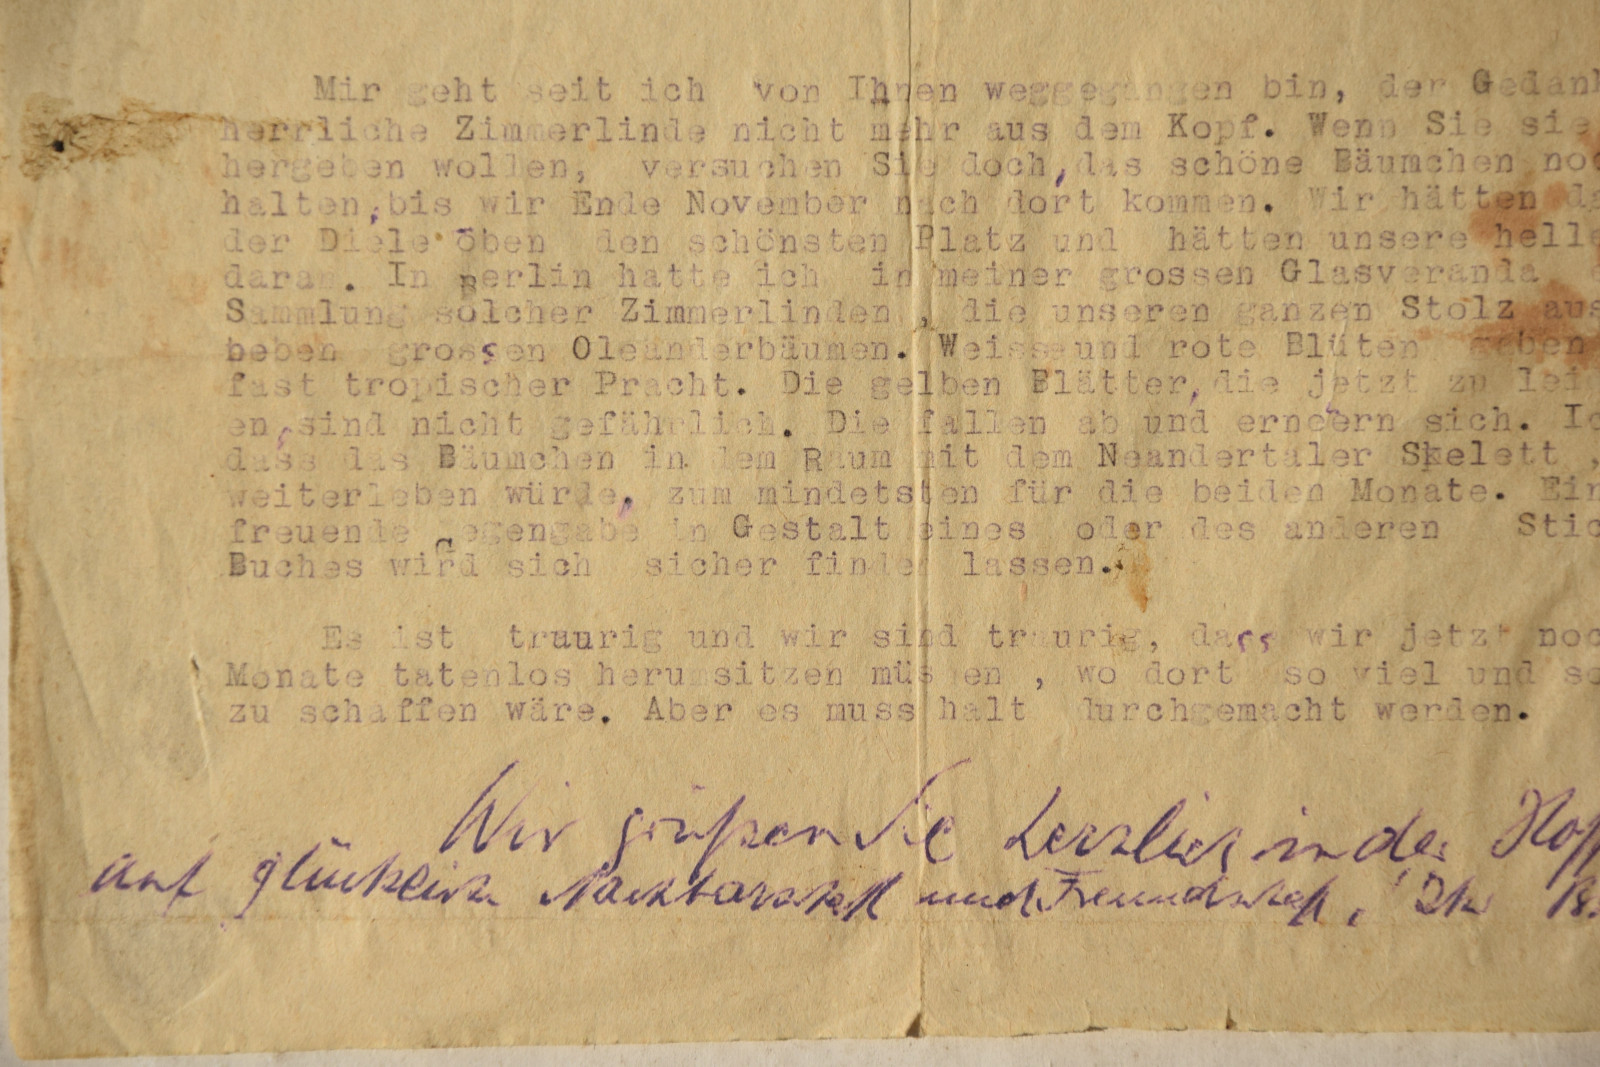 Mir geht seit ich von Ihnen weggegangen bin, der Gedank
herrliche Zimmerlinde nicht mehr aus dem Kopf. Wenn Sie sie
hergeben wollen, versuchen Sie doch, das schöne Bäumchen noc
halten, bis wir Ende November nach dort kommen. Wir hätten da
der Diele oben den schönsten Platz und hätten unsere helle
daran. In Berlin hatte ich in meiner grossen Glasveranda
Sammlung solcher Zimmerlinden, die unseren ganzen Stolz aus
neben grossen Oleanderbäumen. Weisse und rote Blüten gaben
fast tropischer Pracht. Die gelben Blätter, die jetzt zu
en, sind nicht gefährlich. Die fallen ab und erneern sich. Ic
dass das Bäumchen in dem Raum mit dem Neandertaler Skelett,
weiterleben würde, zum mindetsten für die beiden Monate. Ein
freuende Gegengabe in Gestalt eines oder des anderen Stic
Buches wird sich sicher finden lassen.
Es ist traurig und wir sind traurig, dass wir jetzt noc
Monate tatenlos herumsitzen müssen, wo dort so viel und so
zu schaffen wäre. Aber es muss halt durchgemacht werden.
Wir grüßen Sie herzlich in der Hoff
auf glückliche Nachbarschaft und Freundschaft, Ihr